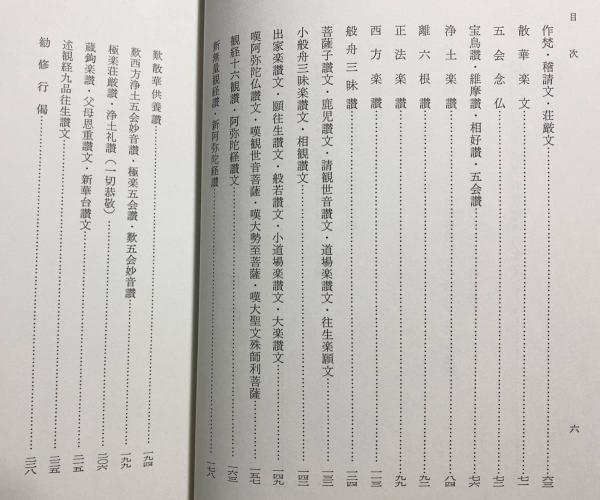 目次
六
作梵・稽請文・荘厳文……六三
散華楽文……七一
五会念仏……七二
宝鳥讃・維摩讃・相好讃・五会讃……七六
浄土楽讃……八四
離六根讃……九二
正法楽讃……九九
西方楽讃……一一三
般舟三昧讃……一二四
菩薩子讃文・鹿児讃文・請観世音讃文・道場楽讃文・往生楽願文……一三二
小般舟三昧楽讃文・相観讃文……一四二
出家楽讃文・願往生讃文・般若讃文・小道場楽讃文・大楽讃文……一四九
嘆阿弥陀仏讃文・嘆観世音菩薩・嘆大勢至菩薩・嘆大聖文殊師利菩薩……一五七
観経十六観讃・阿弥陀経讃文……一六三
新無量観経讃・新阿弥陀経讃……一七八
歎散華供養讃……一九四
歎西方浄土五会妙音讃・極楽五会讃・歎五会妙音讃……一九九
極楽荘厳讃・浄土礼讃（一切恭敬）……二〇六
蔵鉤楽讃・父母恩重讃文・新華台讃文……二一五
述観経九品往生讃文……二二五
勧修行偈……二二八